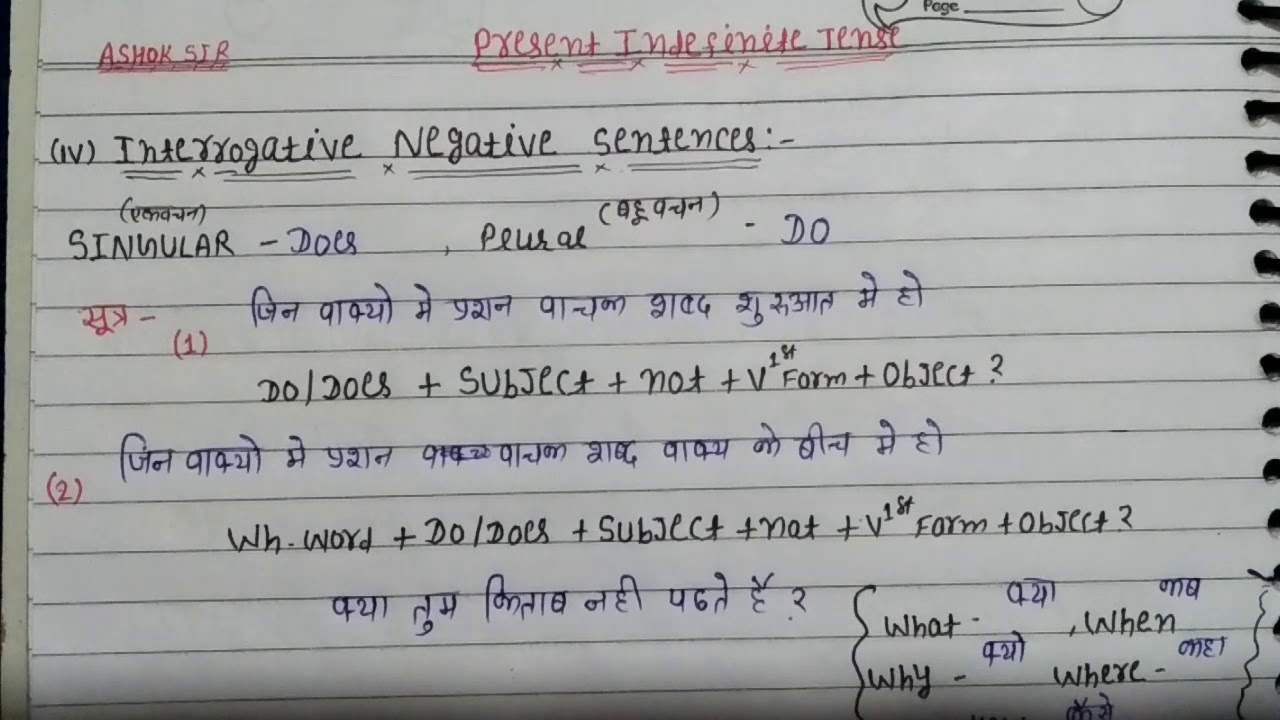 Page
ASHOK SIR Present Indefinite Tense
(iv) Interrogative Negative Sentences:-
(एकवचन) (बहूवचन)
SINGULAR - Does , Plural - DO
सूत्र - (1) जिन वाक्यो मे प्रशन वाचक शब्द शुरुआत मे हो
DO/Does + Subject + not + V 1st Form + Object ?
(2) जिन वाक्यो मे प्रशन वाचक शब्द वाक्य के बीच मे हो
Wh.word + DO/Does + Subject + not + V 1st Form + Object ?
क्या तुम किताब नही पढते है ?
What - क्या , When कब
Why - क्यो Where - कहा
कैसे